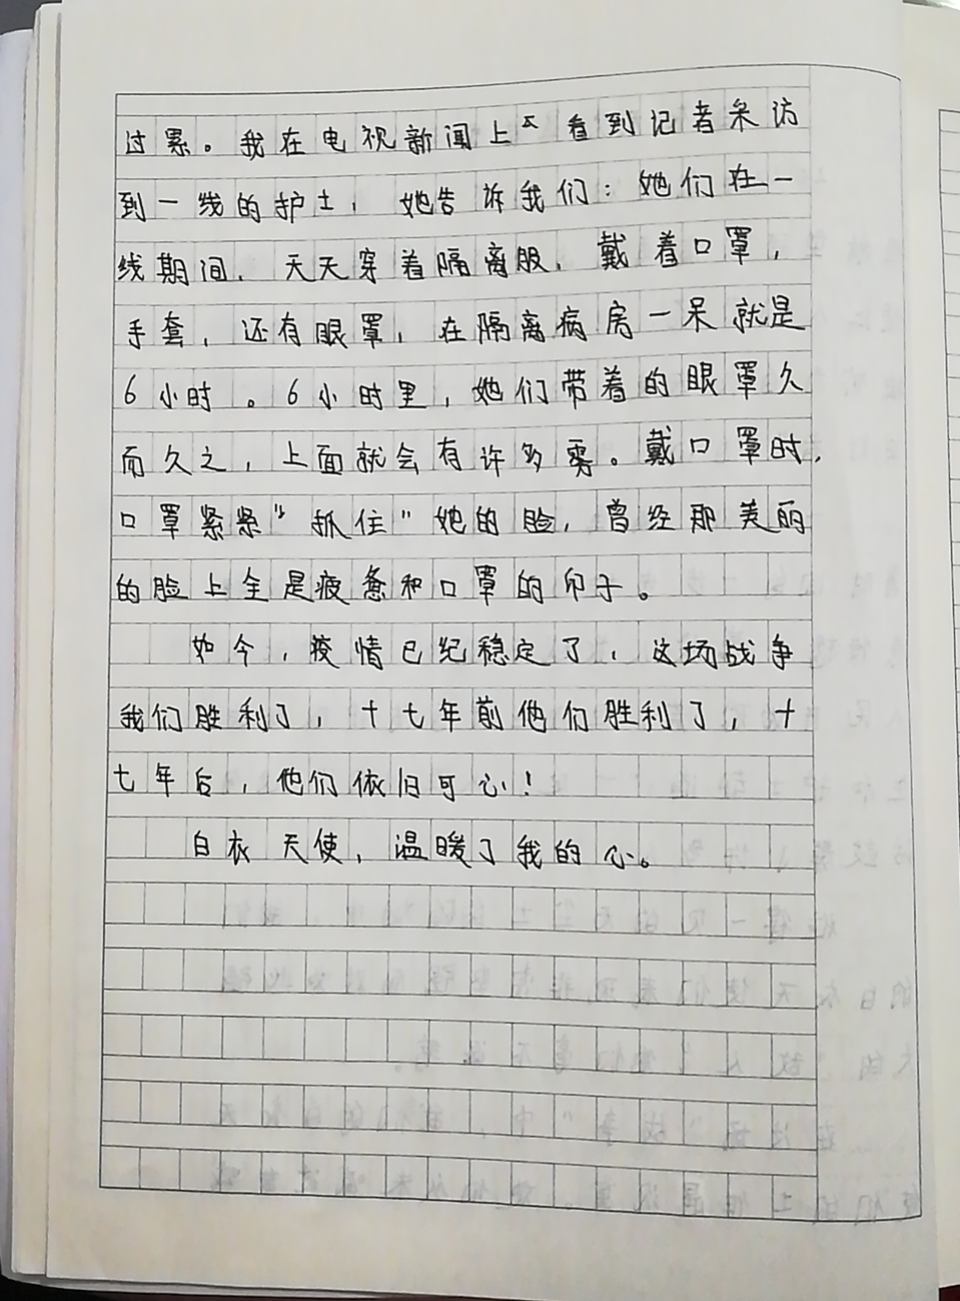 过累。我在电视新闻上看到记者采访
到一线的护士，她告诉我们：她们在一
线期间，天天穿着隔离服，戴着口罩，
手套，还有眼罩，在隔离病房一呆就是
6小时。6小时里，她们带着的眼罩久
而久之，上面就会有许多雾。戴口罩时，
口罩紧紧“抓住”她的脸，曾经那美丽
的脸上全是疲惫和口罩的印子。
如今，疫情已纪稳定了，这场战争
我们胜利了，十七年前他们胜利了，十
七年后，他们依旧可心！
白衣天使，温暖了我的心。